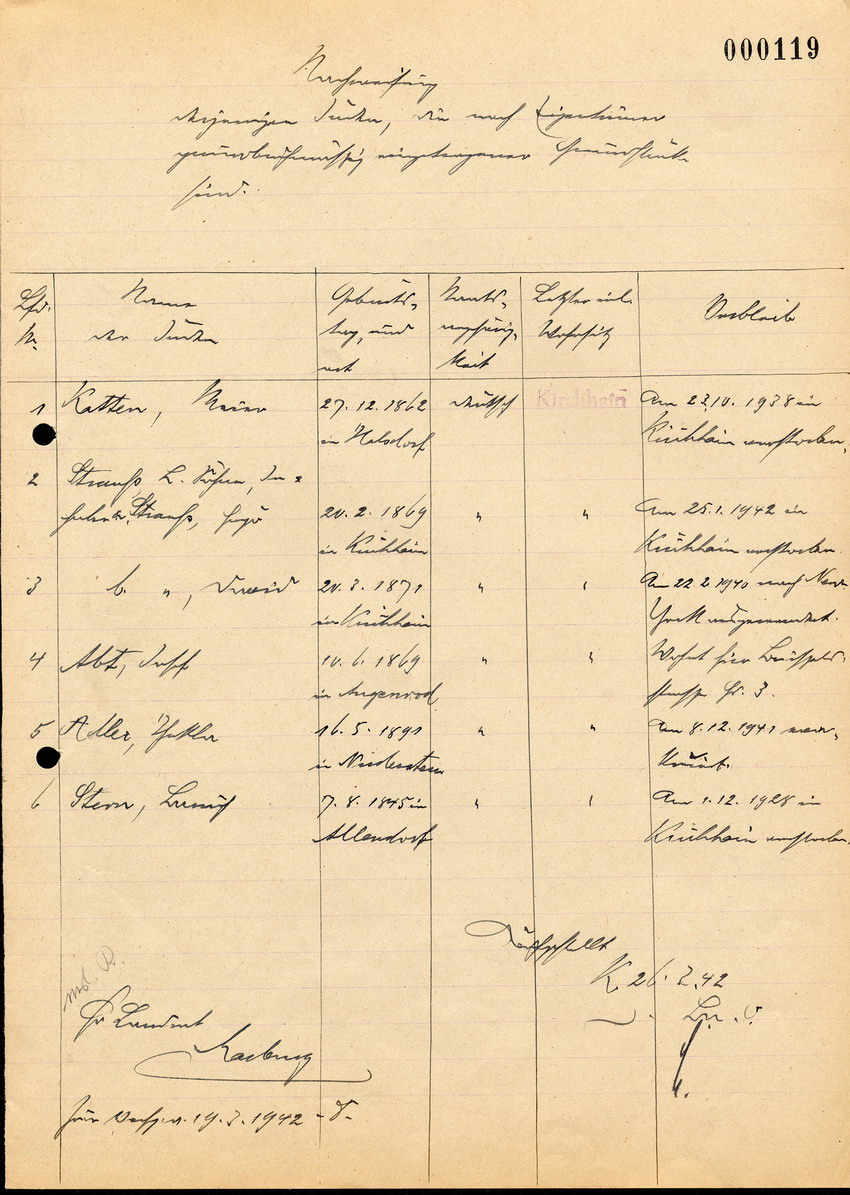 000119
Nachweisung
derjenigen Juden, die noch Eigentümer
grundbuchmässig eingetragener Grundstücke
sind.
Lfd. Nr.
Name der Juden
Geburts- tag, und ort
Staats- angehörig- keit
Letzter inl. Wohnsitz
Verbleib
1 Katten, Meier 27. 12. 1862 deutsch Kirchhain Am 23.10. 1938 in
in Halsdorf Kirchhain verstorben.
2 Strauß L. Söhne, In-
haber Strauß, Hugo 20. 2. 1869 " " Am 25.1. 1942 in
in Kirchhain Kirchhain verstorben.
3 b. ", David 20. 3. 1871 " " Am 22 2 1940 nach New-
in Kirchhain York ausgewandert.
4 Abt, Josef 10. 6. 1869 " " Wohnt hier
in Angenrod straße Nr. 3.
5 Adler, 16. 5. 1891 " " Am 8. 12. 1941
in Niedenstein
6 Stern, 7. 8. 1845 in " " Am 1. 12. 1928 in
Allendorf Kirchhain verstorben.
K 26. 2. 42
Landrat
Marburg
zur Verfg. v. 19. 2. 1942